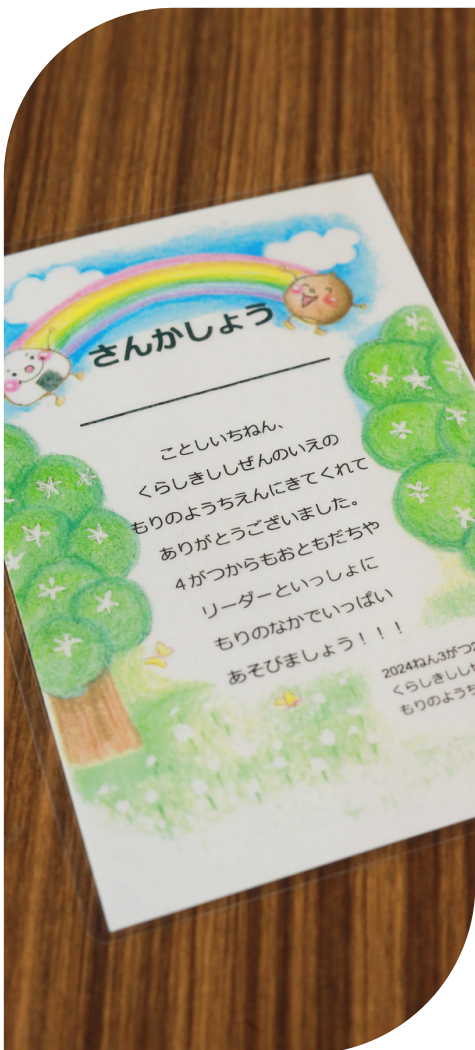 さんかしょう
ことしいちねん、
くらしきししぜんのいえの
もりのようちえんにきてくれて
ありがとうございました。
4がつからもおともだちや
リーダーといっしょに
もりのなかでいっぱい
あそびましょう!!!
2024ねん3がつ
くらしきしし
もりのようち